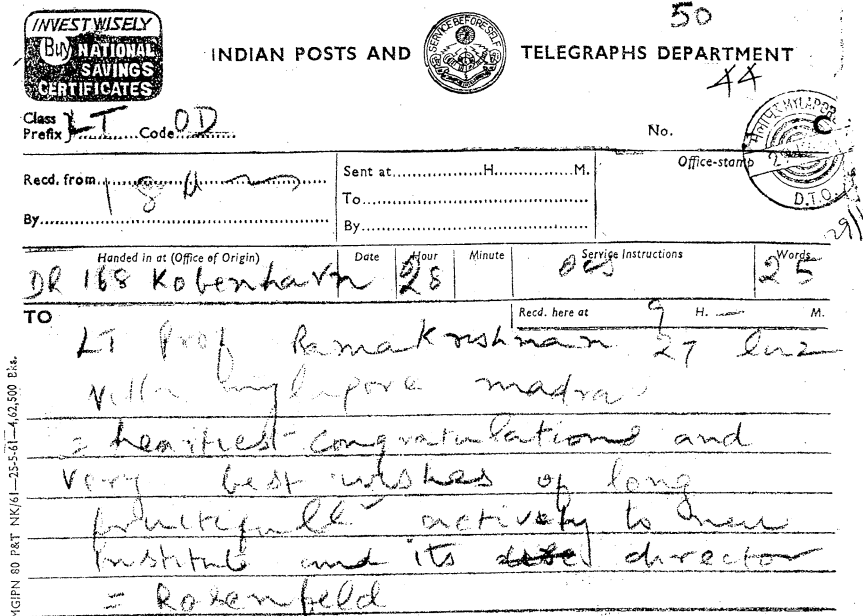 INVEST WISELY
Buy NATIONAL
SAVINGS
CERTIFICATES
50
INDIAN POSTS AND TELEGRAPHS DEPARTMENT
SERVICE BEFORE SELF
44
Class
Prefix } LT Code OD
No.
Office-stamp
MYLAPORE
C
D.T.O.
Recd. from
By
Sent at H. M.
To
By
Handed in at (Office of Origin) Date Hour Minute Service Instructions Words
DR 168 Kobenhavn 28 25
TO
Recd. here at 9 H. — M.
LT Prof Ramakrishnan 27 Luz
Villa mylapore madras
= heartiest congratulations and
very best wishes of long
fruitfull activety to new
Institute and its director
= Rosenfeld
MGIPN 80 P&T NK/61—25-5-61—4,62,500 Bks.